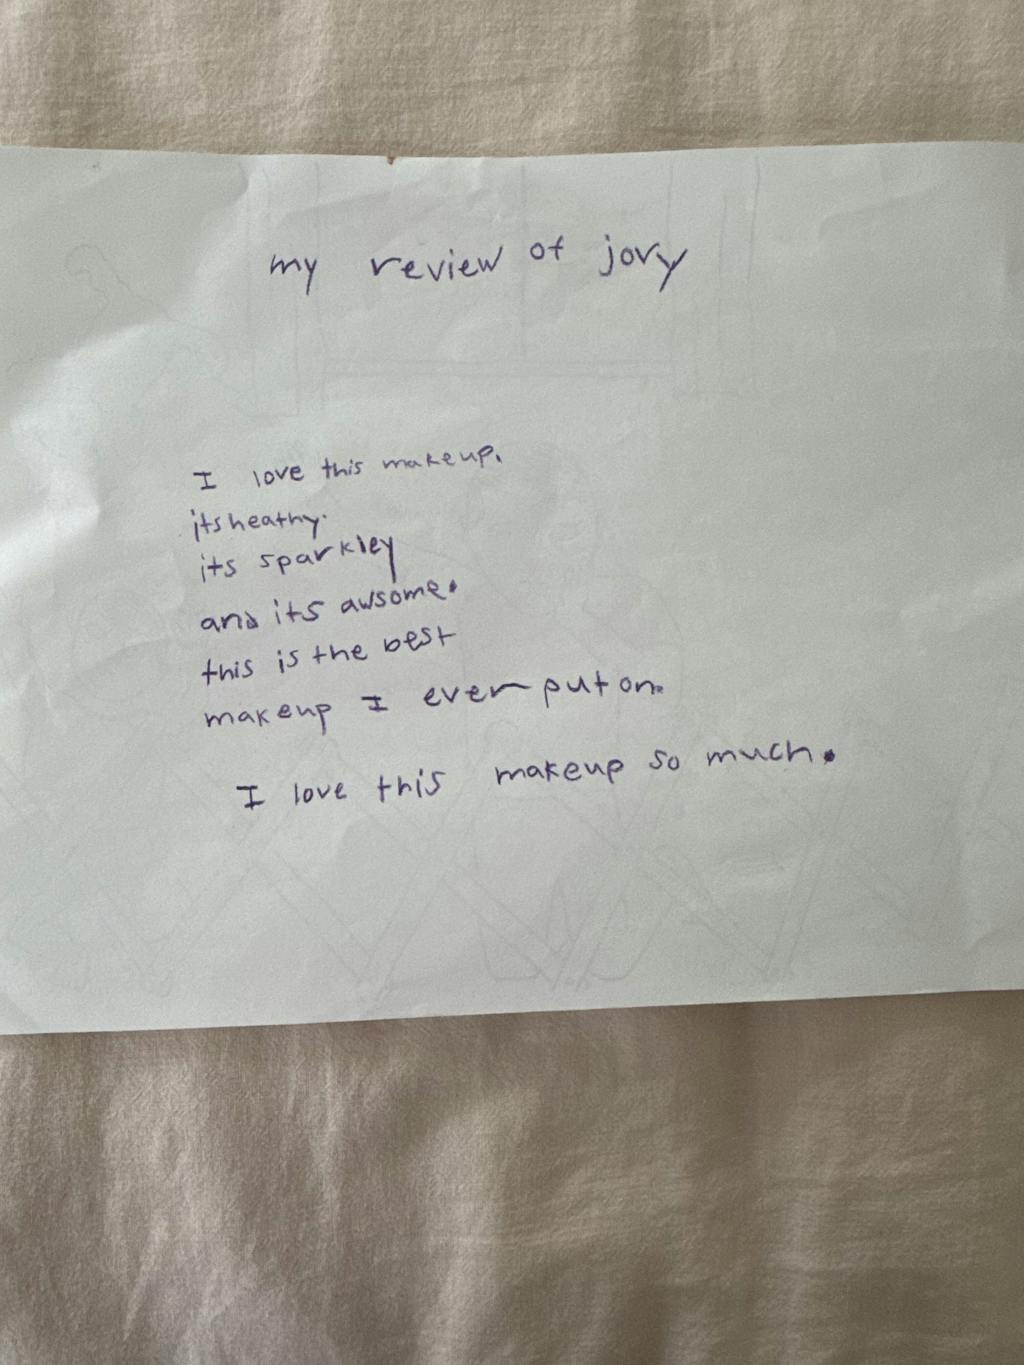 my review of jovy
I love this makeup.
its heathy.
its sparkley
and its awsome.
this is the best
makeup I ever put on.
I love this makeup so much.